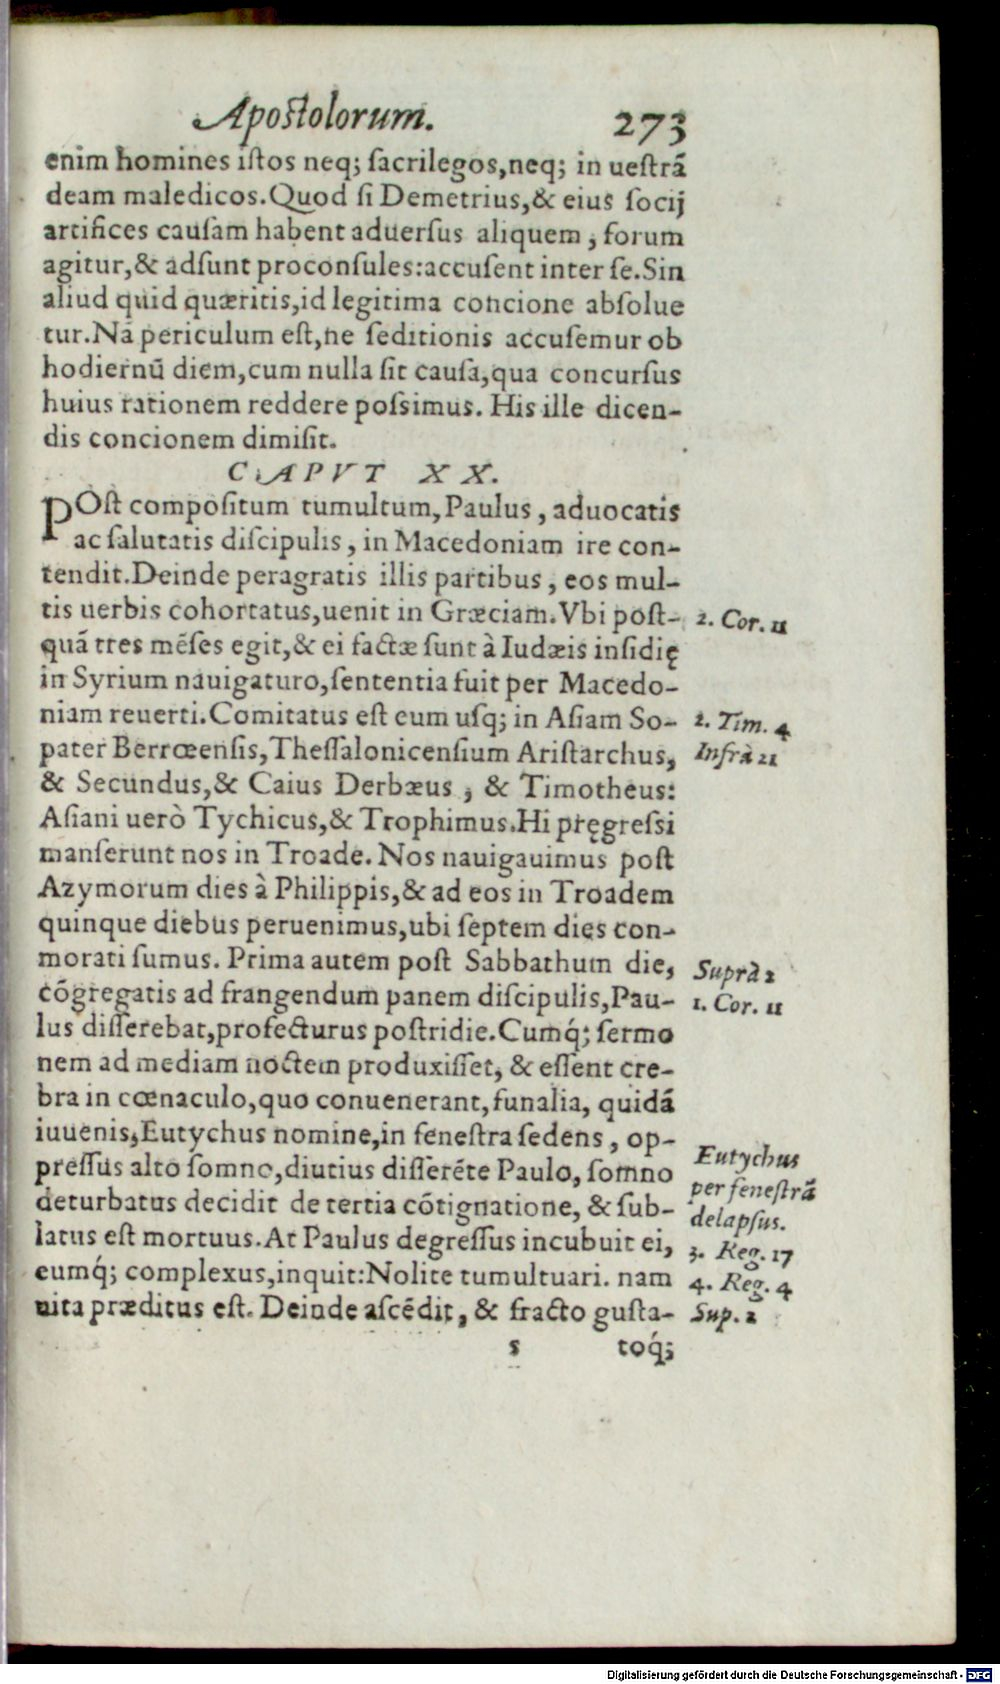 Apostolorum. 273
enim homines istos neq; sacrilegos,neq; in uestrã
deam maledicos.Quod si Demetrius,& eius socij
artifices causam habent aduersus aliquem, forum
agitur,& adsunt proconsules:accusent inter se.Sin
aliud quid quæritis,id legitima concione absolue
tur.Nã periculum est,ne seditionis accusemur ob
hodiernũ diem,cum nulla sit causa,qua concursus
huius rationem reddere possimus. His ille dicen-
dis concionem dimisit.
CAPVT XX.
POst compositum tumultum, Paulus, aduocatis
ac salutatis discipulis, in Macedoniam ire con-
tendit.Deinde peragratis illis partibus, eos mul-
tis uerbis cohortatus,uenit in Græciam.Vbi post-
quã tres mẽses egit,& ei factæ sunt à Iudæis insidię
in Syrium nauigaturo,sententia fuit per Macedo-
niam reuerti.Comitatus est eum usq; in Asiam So-
pater Berrœensis, Thessalonicensium Aristarchus,
& Secundus,& Caius Derbæus, & Timotheus:
Asiani uerò Tychicus,& Trophimus.Hi pręgressi
manserunt nos in Troade. Nos nauigauimus post
Azymorum dies à Philippis,& ad eos in Troadem
quinque diebus peruenimus,ubi septem dies con-
morati sumus. Prima autem post Sabbathum die,
cõgregatis ad frangendum panem discipulis,Pau-
lus disserebat,profecturus postridie.Cumq́; sermo
nem ad mediam noctem produxisset, & essent cre-
bra in cœnaculo,quo conuenerant,funalia, quidã
iuuenis,Eutychus nomine,in fenestra sedens, op-
pressus alto somno,diutius disserẽte Paulo, somno
deturbatus decidit de tertia cõtignatione, & sub-
latus est mortuus.At Paulus degressus incubuit ei,
eumq́; complexus,inquit:Nolite tumultuari. nam
uita præditus est. Deinde ascẽdit, & fracto gusta-
s toq́;
2. Cor. 11
2. Tim. 4
Infrà 21
Suprà 2
1. Cor. 11
Eutychus
per fenestrã
delapsus.
3. Reg. 17
4. Reg. 4
Sup. 2
Digitalisierung gefördert durch die Deutsche Forschungsgemeinschaft - DFG